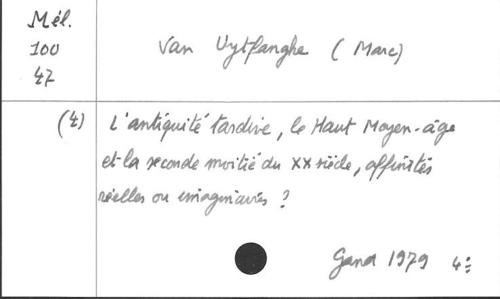 Mél.
100
47
Van Uytfanghe (Marc)
(4) L'antiquité tardive, le Haut Moyen-âge
et la seconde moitié du XX siècle, affinités
réelles ou imaginaires ?
Gand 1979 4: